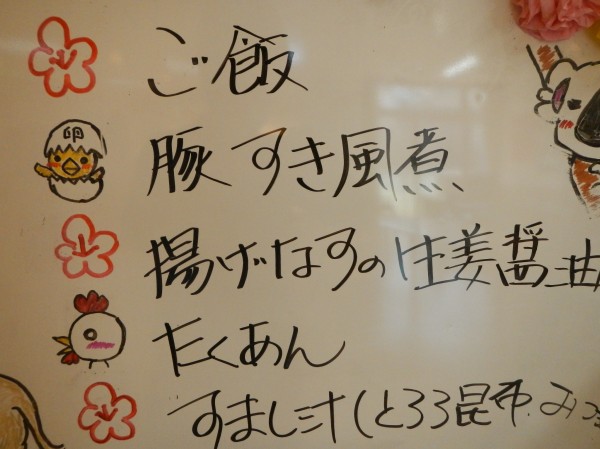 ご飯
卵
豚すき風煮
揚げなすの生姜醤油
たくあん
すまし汁(とろろ昆布.みつ